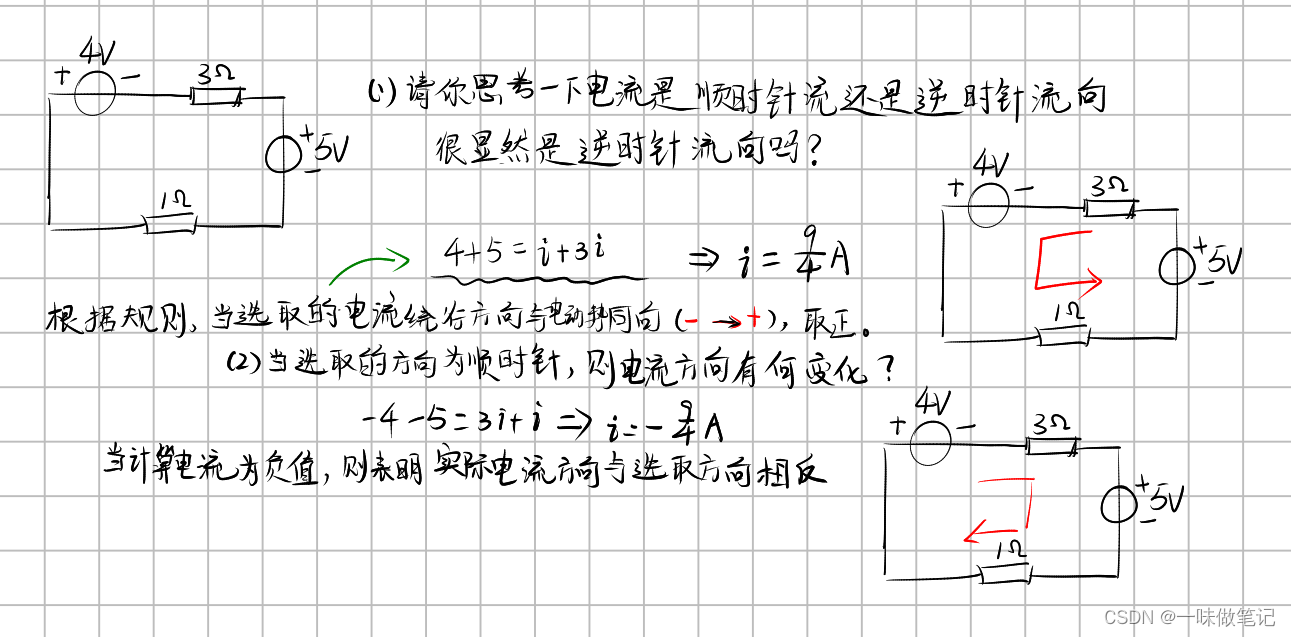 4V
+ -
3Ω
+
5V
-
1Ω
(1) 请你思考一下电流是顺时针流还是逆时针流向
很显然是逆时针流向吗?
4+5=i+3i ⇒ i=9/4 A
根据规则, 当选取的电流绕行方向与电动势同向 (- → +), 取正。
4V
+ -
3Ω
+
5V
-
1Ω
(2) 当选取的方向为顺时针, 则电流方向有何变化?
-4-5=3i+i ⇒ i=-9/4 A
当计算电流为负值, 则表明实际电流方向与选取方向相反
4V
+ -
3Ω
+
5V
-
1Ω
CSDN @一味做笔记